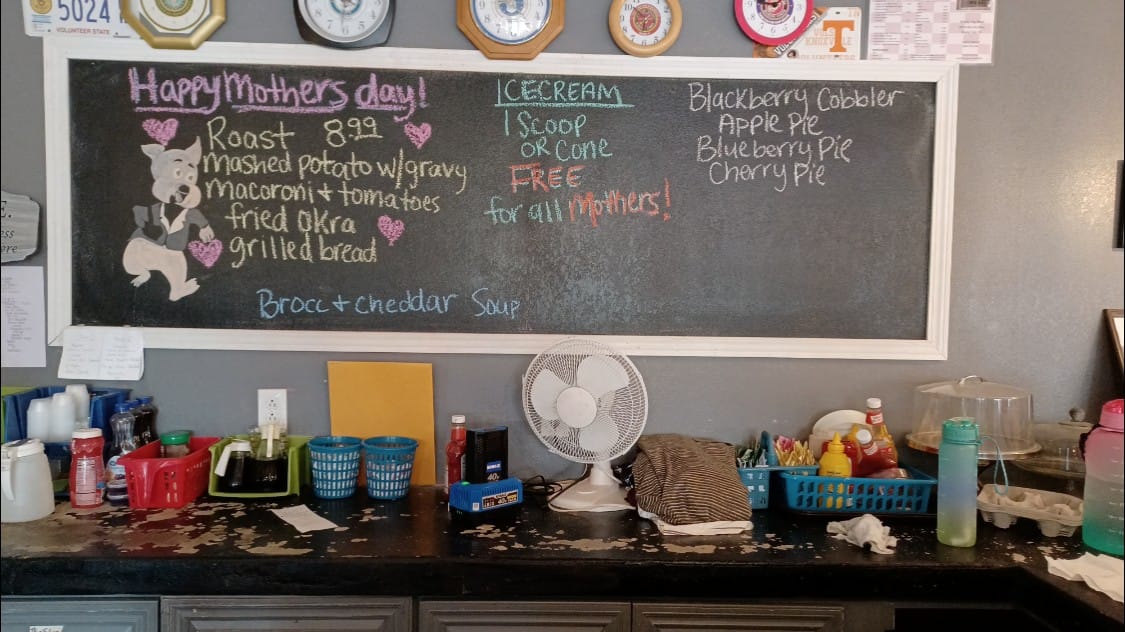 5024
VOLUNTEER STATE
Happy Mothers day!
Roast 8.99
mashed potato w/gravy
macaroni + tomatoes
fried okra
grilled bread
Brocc + cheddar Soup
ICECREAM
1 Scoop
OR Cone
FREE
for all Mothers!
Blackberry Cobbler
Apple Pie
Blueberry Pie
Cherry Pie
T
E.
ess
ere